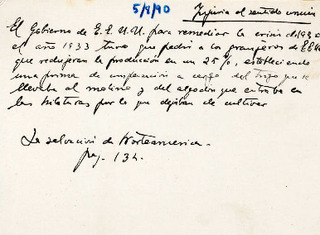 5/8/90
Injuria al sentido común
El Gobierno de E.E.U.U. para remediar la crisis
el año 1933 tuvo que pedir a los granjeros de EE
que redujeran la producción en un 25%, estableciendo
una forma de a cargo del trigo que
llevaba al molino y del algodón que entraba en
las hilaturas por lo que dejaban de cultivar
La salvación de Norteamerica.
pag. 134.